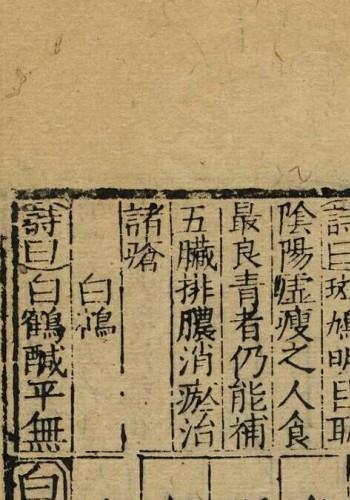 詩曰斑鳩明目取
陰陽虛瘦之人食
最良青者仍能補
五臟排膿消瘀治
諸瘡
白鶴
詩曰白鶴鹹平無
白